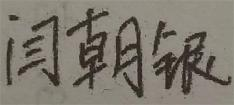 闫朝银